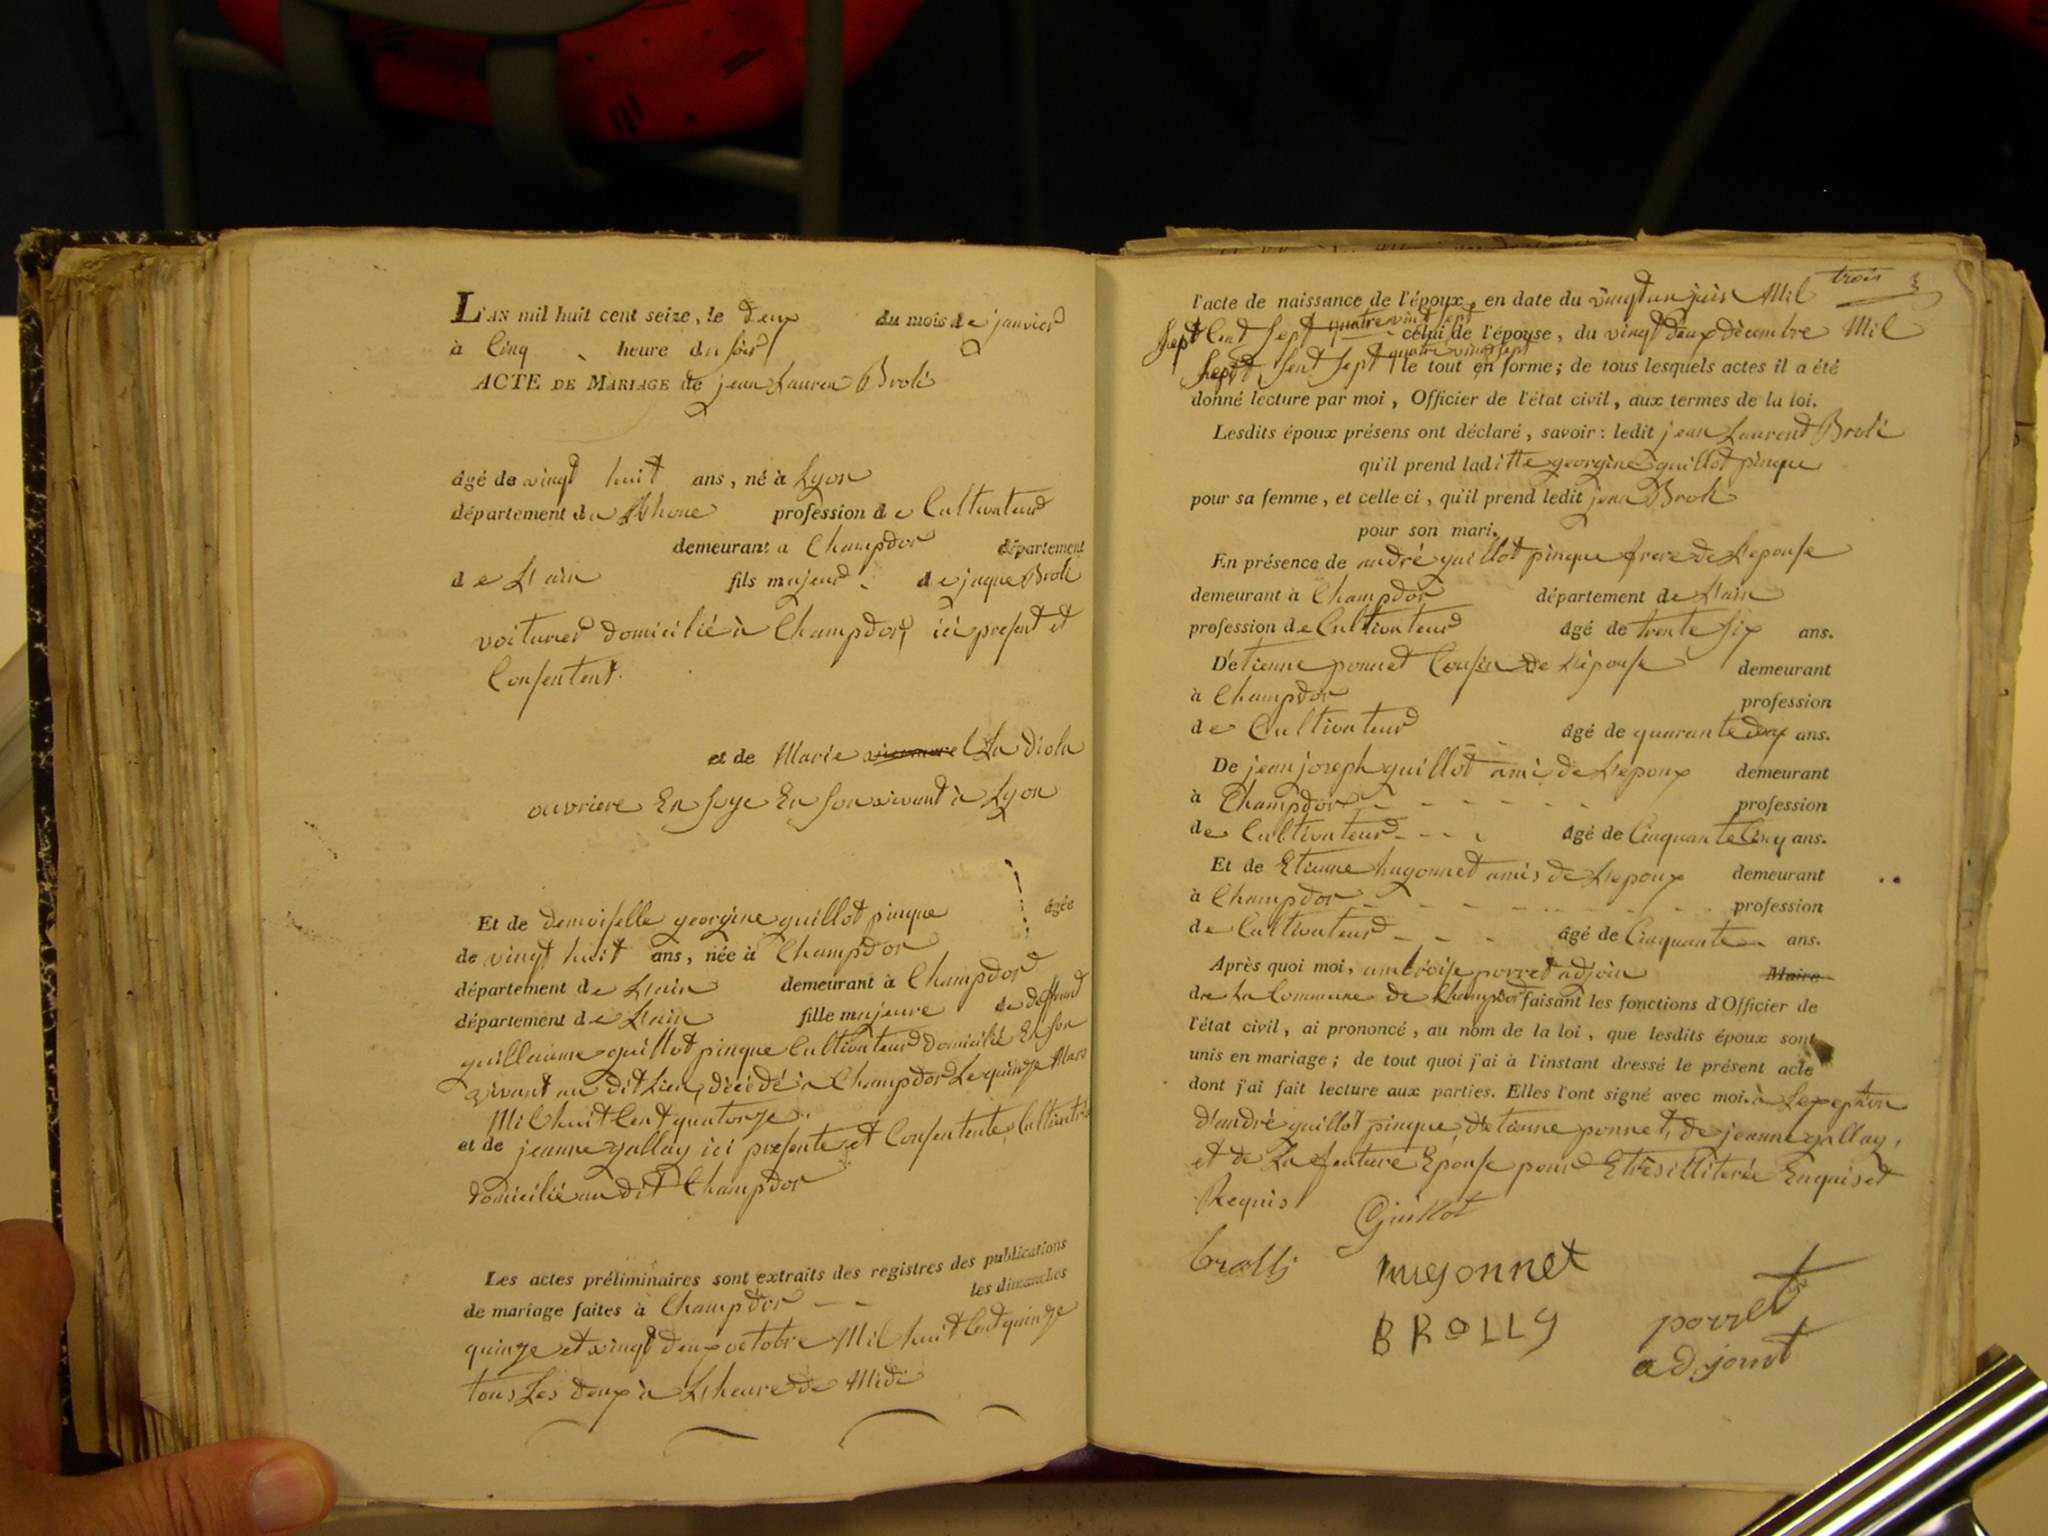 L'AN mil huit cent seize, le deux du mois de janvier
à Cinq heure du soir
ACTE DE MARIAGE de jean Lauren Broli
âgé de vingt huit ans, né à Lyon
département du Rhone profession de Cultivateur
demeurant a Champdor département
de L'ain fils majeur de jaque Broli
voiturier domicilié à Champdor, ici present et
Consentent.
et de Marie La diola
ouvriere En soye En son vivant à Lyon
Et de demoiselle georgine guillot pinque âgée
de vingt huit ans, née à Champdor
département de L'ain demeurant à Champdor
département de L'ain fille majeure de deffund
guillaume guillot pinque Cultivateur domicilié En son
vivant au dit Lieu, décédé à Champdor Le quinze Mars
Mil huit Cent quatorze.
et de jeanne yallay ici presente et Consentente, Cultivatri
domicilié au dit Champdor
Les actes préliminaires sont extraits des registres des publications
de mariage faites à Champdor les dimanches
quinze et vingt deux octobre Mil huit Cent quinze
tous Les deux à L'heure de Midi
trois 3
l'acte de naissance de l'époux, en date du vingt un juin Mil
Sept Cent Sept quatre vingt sept celui de l'épouse, du vingt deux décembre Mil
Sept Sent Sept quatre vingt sept le tout en forme; de tous lesquels actes il a été
donné lecture par moi, Officier de l'état civil, aux termes de la loi.
Lesdits époux présens ont déclaré, savoir: ledit jean Laurent Broli
qu'il prend laditte georgine guillot pinque
pour sa femme, et celle ci, qu'il prend ledit jean Broli
pour son mari.
En présence de andré guillot pinque frere de L'epouse
demeurant à Champdor département de L'ain
profession de Cultivateur âgé de trente six ans.
D'etienne ponnet Cousin de L'épouse demeurant
à Champdor profession
de Cultivateur âgé de quarante deux ans.
De jean joseph guillot ami de L'epoux demeurant
à Champdor profession
de Cultivateur âgé de Cinquante Cinq ans.
Et de Etienne hugonnet amis de L'epoux demeurant
à Champdor profession
de Cultivateur âgé de Cinquante ans.
Après quoi moi, ambroise porret adjoin Maire
de La Commune de Champdor faisant les fonctions d'Officier de
l'état civil, ai prononcé, au nom de la loi, que lesdits époux sont
unis en mariage; de tout quoi j'ai à l'instant dressé le présent acte
dont j'ai fait lecture aux parties. Elles l'ont signé avec moi à L'exeption
d'andré guillot pinque, d'etienne ponnet, de jeanne yallay,
et de La future Epouse pour Etre illiteré Enquis et
Requis
Guillot
brolly hugonnet
BROLLY porret
adjoint